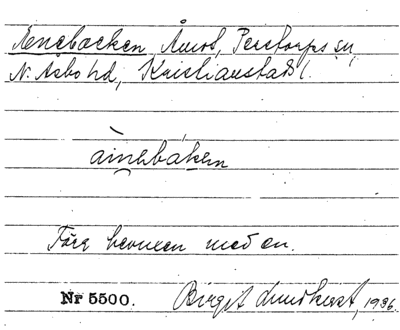 Ænebacken, Åmot, Perstorps sn,
N. Åsbo hd, Kristianstads l.
ainebäken
med en.
Nr 5500. Birgit Lundkvist, 1936.